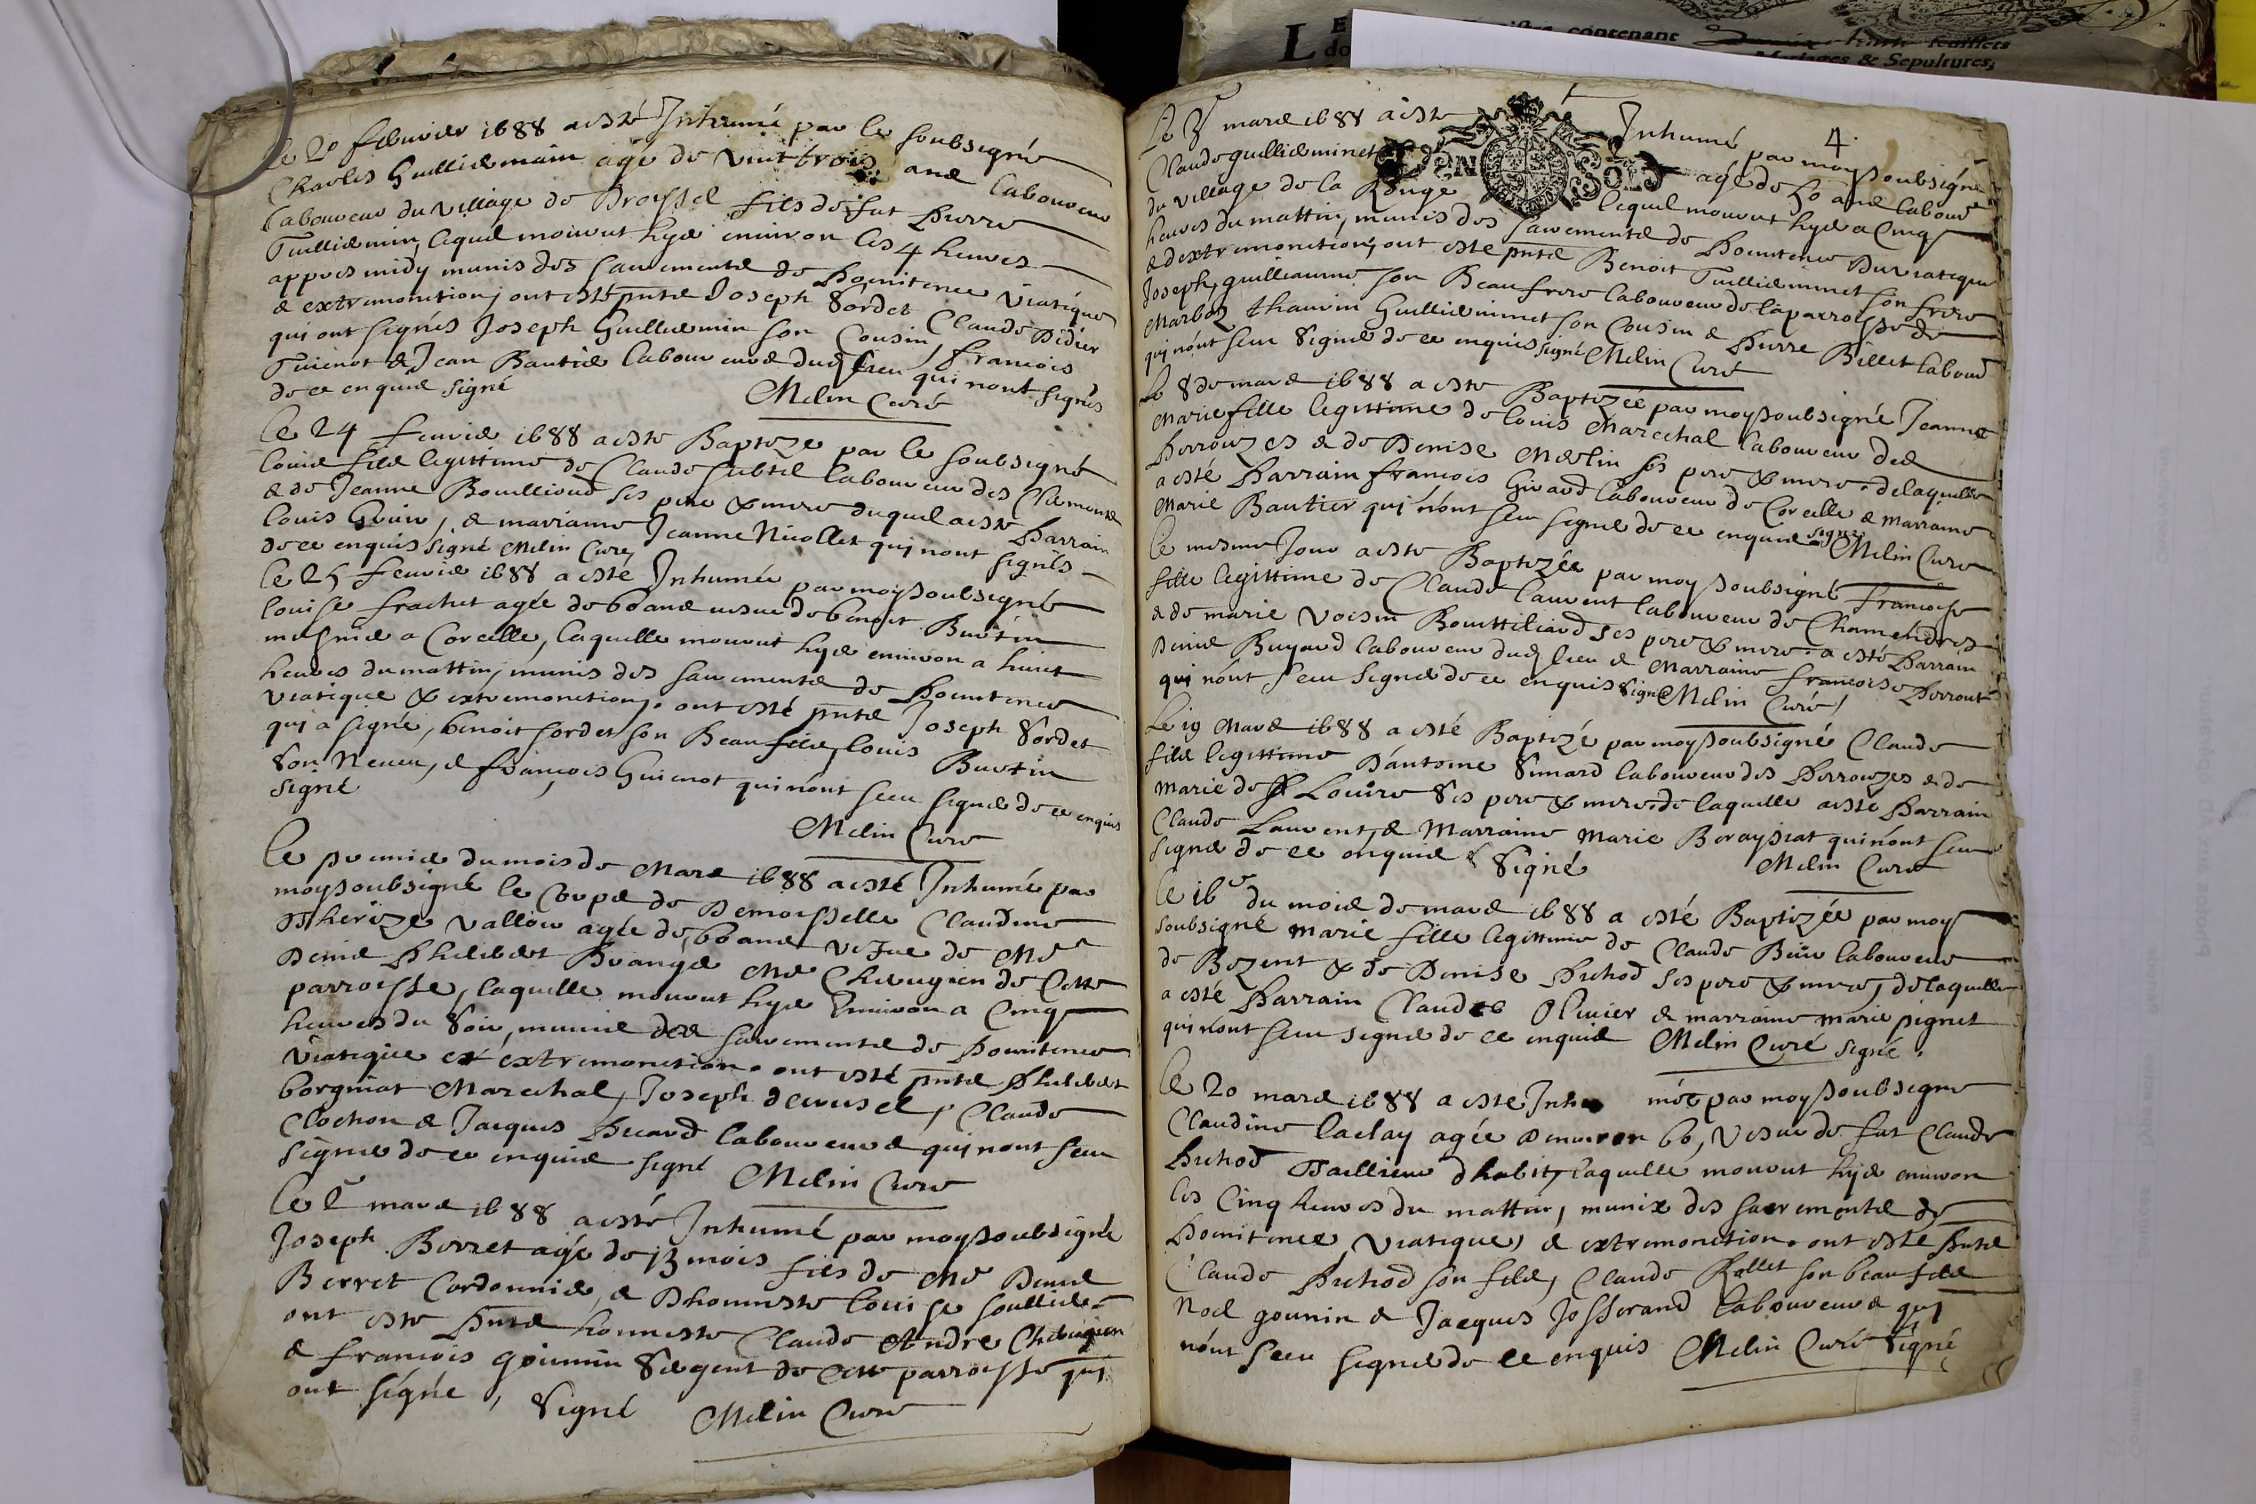 Le 20 febvrier 1688 a esté Inhumé par le soubsigné
Charles Guilliemain agé de vint trois ans laboureur
laboureur du village de Broyssel fils de fut Pierre
Guilliemin, lequel mourut hyer environ les 4 heures
appres midy munis des sacrements de Penitence Viatique
& extremonction, ont esté pnts Joseph Sordet Claude Didier
qui ont signés Joseph Guilliemin son Cousin, francois
Guienot & Jean Bautier laboureurs dud lieu qui nont signés
de ce enquis signé Melin Curé
Le 24 feuvrier 1688 a esté Baptizé par le soubsigné
Louis fils legittime de Claude Subtil laboureur des Clemonts
& de Jeanne Bouilloud ses pere & mere duquel a esté Parrain
Louis Guiu, & marianne Jeanne Nicollet qui nont signés
de ce enquis signé Melin Curé
Le 25 feuvrier 1688 a esté Inhumée par moy soubsigné
louise frachet agée de 60 ans vesve de benoit Burtin
musnier a Corcelle, laquelle mourut hyer environ a huict
heures du mattin, munis des sacrements de Penitence
viatique & extremonction, ont esté pnts Joseph Sordet
qui a signé, benoit sordet son Beaufils, louis Burtin
son Neveu, & francois Guienot qui nont sceu signer de ce enquis
signé Melin Curé
Le premier du mois de Mars 1688 a esté Inhumé par
moy soubsigné le Corps de Demoisselle Claudine
Therèze Vallou agée de 60 ans vefve de Mr
Denis Philibert Brangé Me Chirurgien de Cette
parroisse, laquelle mourut hyer Environ a Cinq
heures du soir, munie des sacrements de Penitence
viatique et extremonction. ont esté pnts Philibert
borgniat Marechal, Joseph decrusel, Claude
Clochon & Jacques Picard laboureurs qui nont sceu
signer de ce enquis signé Melin Curé
Le 2 mars 1688 a esté Inhumé par moy soubsigné
Joseph Berret agé de 13 mois fils de Me Denis
Berret Cordonnier, & Dhonneste louise soullier
ont esté pnts honneste Claude Andre Chirugien
& francois gounin sergent de cette parroisse qui
ont signé, signé Melin Curé
4
DEN SOLS
Le 3 mars 1688 a esté Inhumé par moy soubsigné
Claude guillieminet agé de 50 ans labour
du village de la Rouge lequel mourut hyer a Cinq
heures du mattin, munis des sacrements de Penitence Du viatique
& dextremonction, ont esté pnts Benoit Guilliaminet son frere
Joseph guilleaume son Beaufrere laboureur de la parroisse de
Marboz thauvin Guilliaminet son Cousin & Pierre Billet labour
qui nont sceu signer de ce enquis signé Melin Curé
Le 8 de mars 1688 a esté Baptizée par moy soubsigné Jeanne
Marie fille legittime de Louis Marechal laboureur des
Perrouzes & de Denise Merlin ses pere & mere. de laquelle
a esté Parrain francois Girard laboureur de Corcelle & marraine
Marie Bautier qui nont sceu signer de ce enquis signé Melin Curé
Le mesme Jour a esté Baptizée par moy soubsigné francoise
fille legittime de Claude Laurent laboureur de Chamendres
& de marie Voisin Bouttiliard ses pere & mere. a esté Parrain
Denis Buyard laboureur dud lieu & Marraine francoise Perrout
qui nont sceu signer de ce enquis signé Melin Curé
Le 19 Mars 1688 a esté Baptizé par moy soubsigné Claude
fils legittime D'antoine Simard laboureur des Perrouzes & de
Marie de Louire ses pere & mere. de laquelle a esté Parrain
Claude Laurent, & Marraine Marie Berayssiat qui nont sceu
signer de ce enquis & signé Melin Curé
Le 16 du mois de mars 1688 a esté Baptizée par moy
soubsigné marie fille legittime de Claude Biu laboureur
de Bezent & de Denise Puthod ses pere & mere, de laquelle
a esté Parrain Claude Olivier & marraine marie pignet
qui nont sceu signer de ce enquis Melin Curé signé.
Le 20 mars 1688 a esté Inhu mée par moy soubsigné
Claudine laclay agée denviron 60, vesve de fut Claude
Puthod Taillieur d'habit, laquelle mourut hyer environ
les Cinq heures du mattin, munix des sacrements de
Penitence, Viatique, & extremonction. ont esté pnts
Claude Puthod son fils, Claude Rollet son beau fils
Noel gounin & Jacques Josserand laboureurs qui
nont sceu signer de ce enquis Melin Curé signé
contenant feuillets
Mariages & Sepultures,